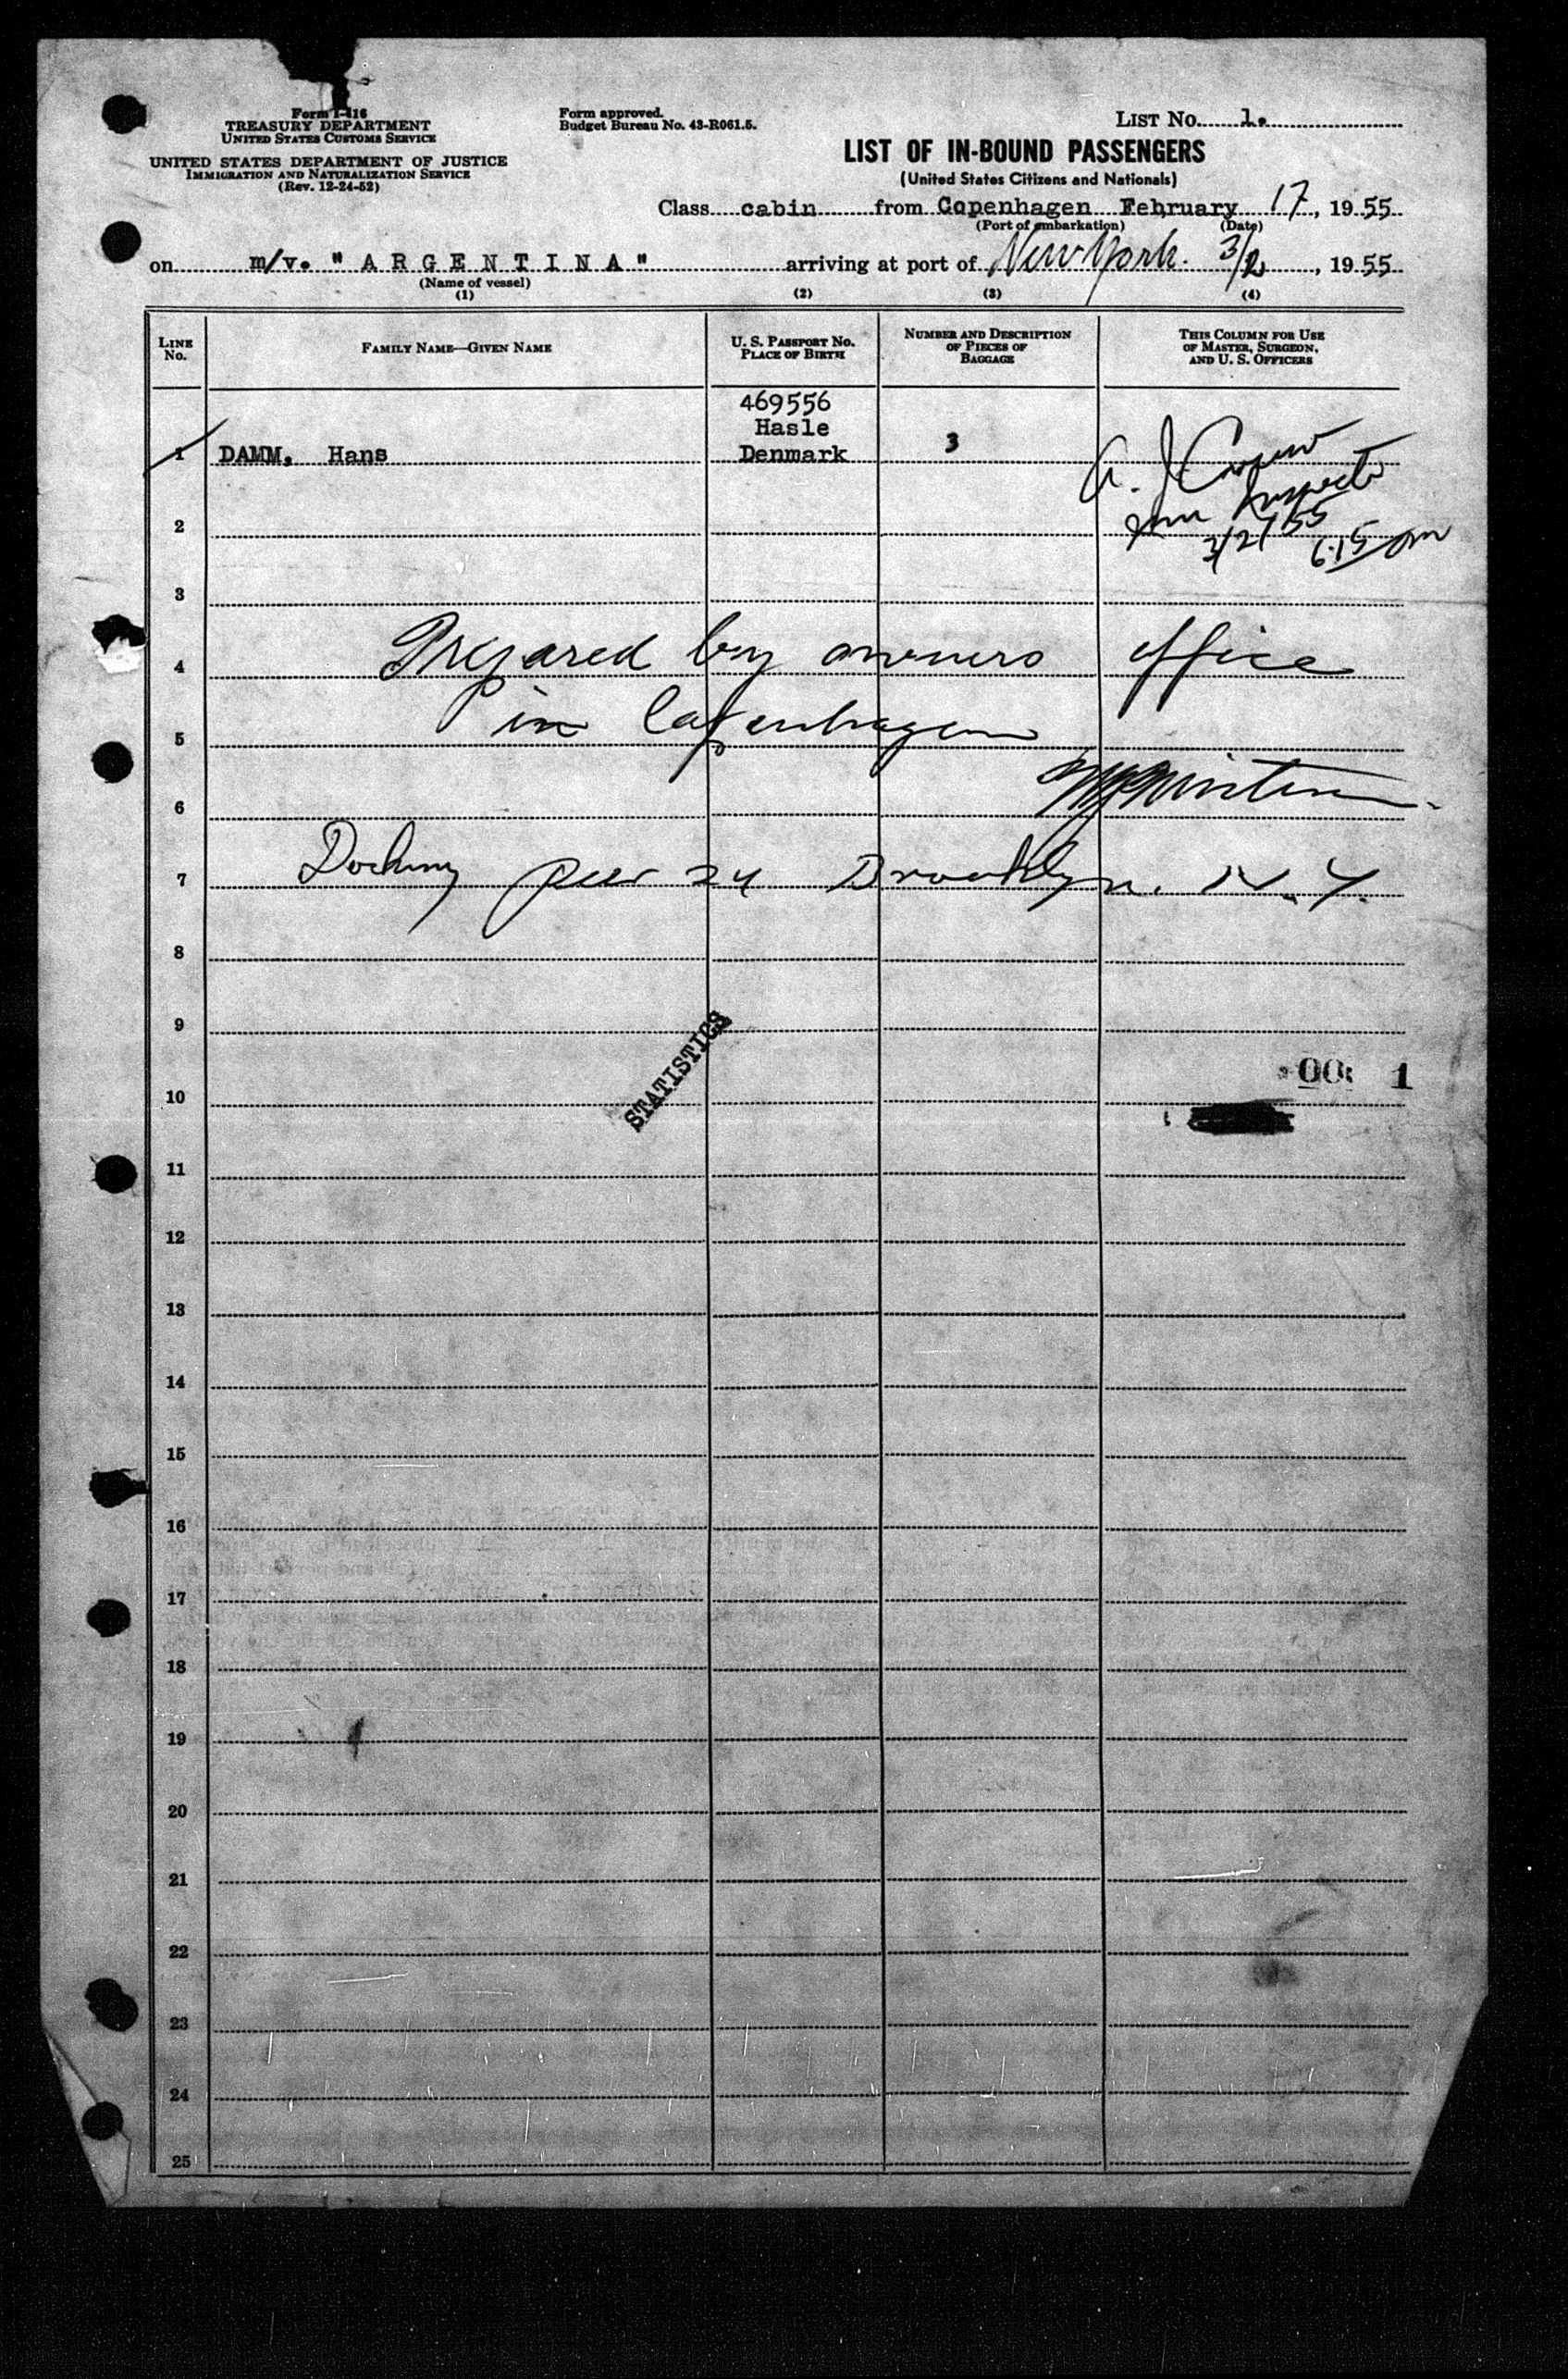 Form I-416
TREASURY DEPARTMENT
UNITED STATES CUSTOMS SERVICE
UNITED STATES DEPARTMENT OF JUSTICE
IMMIGRATION AND NATURALIZATION SERVICE
(Rev. 12-24-52)
Form approved.
Budget Bureau No. 43-R061.5.
LIST No. 1.
LIST OF IN-BOUND PASSENGERS
(United States Citizens and Nationals)
Class cabin from Copenhagen February 17, 1955
(Port of embarkation) (Date)
on m/v. "ARGENTINA" arriving at port of New York. 3/2, 1955
(Name of vessel)
(1) (2) (3) (4)
LINE No.
FAMILY NAME—GIVEN NAME
U. S. PASSPORT No.
PLACE OF BIRTH
NUMBER AND DESCRIPTION
OF PIECES OF
BAGGAGE
THIS COLUMN FOR USE
OF MASTER, SURGEON,
AND U. S. OFFICERS
469556
Hasle
1 DAMM, Hans Denmark 3
Inspector
2
3/2/55 6:15 pm
3
4 Prepared by owners office
5 in Copenhagen
6
7 Docking pier 24 Brooklyn. N.Y.
8
9
STATISTICS
10
00 1
11
12
13
14
15
16
17
18
19
20
21
22
23
24
25